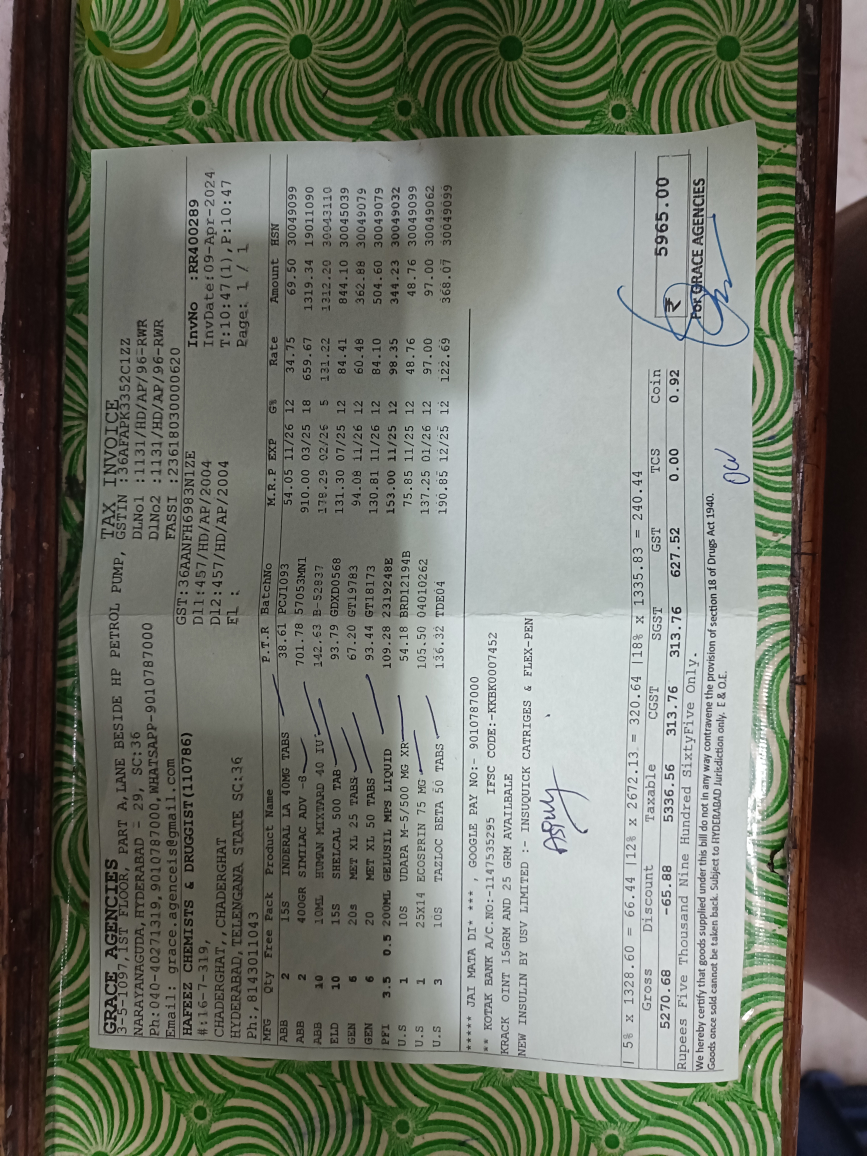 GRACE AGENCIES TAX INVOICE
3-5-1097,1ST FLOOR, PART A,LANE BESIDE HP PETROL PUMP, GSTIN :36AFAPK3352C1ZZ
NARAYANAGUDA,HYDERABAD - 29, SC:36 DLNo1 :1131/HD/AP/96-RWR
Ph:040-40271319,9010787000,WHATSAPP-9010787000 DlNo2 :1131/HD/AP/96-RWR
Email: grace.agenceis@gmail.com FASSI :23618030000620
HAFEEZ CHEMISTS & DRUGGIST(110786) GST:36AANFH6983N1ZE InvNo :RR400289
#:16-7-319, Dl1:457/HD/AP/2004 InvDate:09-Apr-2024
CHADERGHAT, CHADERGHAT Dl2:457/HD/AP/2004 T:10:47(1),P:10:47
HYDERABAD,TELENGANA STATE SC:36 Fl : Page: 1 / 1
Ph:,8143011043
MFG Qty Free Pack Product Name P.T.R BatchNo M.R.P EXP G% Rate Amount HSN
ABB 2 15S INDERAL LA 40MG TABS 38.61 PCJ1093 54.05 11/26 12 34.75 69.50 30049099
ABB 2 400GR SIMILAC ADV -6 701.78 57053MN1 910.00 03/25 18 659.67 1319.34 19011090
ABB 10 10ML HUMAN MIXTARD 40 IU 142.63 B-52837 178.29 02/26 5 131.22 1312.20 30043110
ELD 10 15S SHELCAL 500 TAB 93.79 GDXD0568 131.30 07/25 12 84.41 844.10 30045039
GEN 6 20s MET XL 25 TABS 67.20 GT19783 94.08 11/26 12 60.48 362.88 30049079
GEN 6 20 MET XL 50 TABS 93.44 GT18173 130.81 11/26 12 84.10 504.60 30049079
PFI 3.5 0.5 200ML GELUSIL MPS LIQUID 109.28 2319248E 153.00 11/25 12 98.35 344.23 30049032
U.S 1 10S UDAPA M-5/500 MG XR 54.18 BRD12194B 75.85 11/25 12 48.76 48.76 30049099
U.S 1 25X14 ECOSPRIN 75 MG 105.50 04010262 137.25 01/26 12 97.00 97.00 30049062
U.S 3 10S TAZLOC BETA 50 TABS 136.32 TDE04 190.85 12/25 12 122.69 368.07 30049099
***** JAI MATA DI* *** , GOOGLE PAY NO:- 9010787000
** KOTAK BANK A/C.NO:-1147535295 IFSC CODE:-KKBK0007452
KRACK OINT 15GRM AND 25 GRM AVAILBALE
NEW INSULIN BY USV LIMITED :- INSUQUICK CATRIGES & FLEX-PEN
|5% x 1328.60 = 66.44 |12% x 2672.13 = 320.64 |18% x 1335.83 = 240.44
Gross Discount Taxable CGST SGST GST TCS Coin
5270.68 -65.88 5336.56 313.76 313.76 627.52 0.00 0.92 ₹ 5965.00
Rupees Five Thousand Nine Hundred SixtyFive Only.
We hereby certify that goods supplied under this bill do not in any way contravene the provision of section 18 of Drugs Act 1940.
Goods once sold cannot be taken back. Subject to HYDERABAD Jurisdiction only. E & O.E.
For GRACE AGENCIES